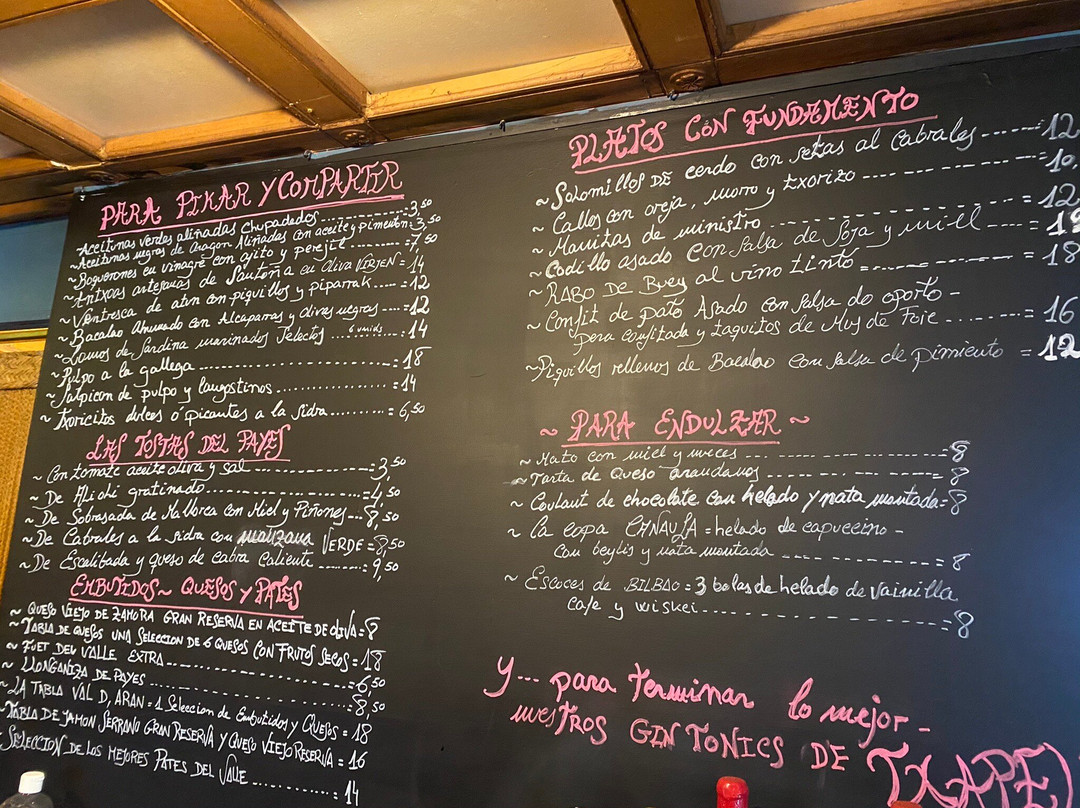 PARA PIKAR Y COMPARTIR
Aceitunas verdes aliñadas chupadedos---------=3,50
~Aceitunas negras de Aragon Aliñadas con aceite y pimenton=3,50
~Boquerones en vinagre con ajito y perejil--------=7,50
~Antxoas artesanas de Santoña en Oliva VIRJEN=14
~Ventresca de atun con piquillos y piparrak-----=12
~Bacalao Ahumado con Alcaparras y olivas negras----=12
~Lomos de Sardina marinados Selectos ...6 unids....=14
~Pulpo a la gallega--------------------=18
~Salpicon de pulpo y langostinos...............=14
~Txoricitos dulces o picantes a la sidra.........=6,50
LAS TOSTAS DEL PAYES
~Con tomate aceite oliva y sal--------------=3,50
~De Alioli gratinado------------------=4,50
~De Sobrasada de Mallorca con Miel y Piñones---8,50
~De Cabrales a la sidra con manzana VERDE=8,50
~De Escalibada y queso de cabra Caliente-------=9,50
EMBUTIDOS~ QUESOS Y PATES
~QUESO VIEJO DE ZAMORA GRAN RESERVA EN ACEITE DE OLIVA=8
~TABLA DE QUESOS UNA SELECCION DE 6 QUESOS CON FRUTOS SECOS=18
~FUET DEL VALLE EXTRA--------------------=6,50
~LLONGANIZA DE PAYES--------------------=8,50
~LA TABLA VAL D,ARAN=1 Seleccion de Embutidos y Quesos=18
~TABLA DE JAMON SERRANO GRAN RESERVA Y QUESO VIEJO RESERVA=16
SELECCION DE LOS MEJORES PATES DEL VALLE............=14
PLATOS CON FUNDAMENTO
~SOLOMILLOS DE cerdo con setas al Cabrales------=12
~Callos con oreja, morro y txorizo----------=10,
~Manitas de ministro----------------=12
~Codillo asado con salsa de Soja y miel---=
~RABO DE Buey al vino tinto----------=18
~Confit de pato Asado con salsa de oporto-
pera confitada y taquitos de Mus de Foie---------=16
~Piquillos rellenos de Bacalao con salsa de pimiento =12
~PARA ENDULZAR~
~Mato con miel y nueces--------------=8
~Tarta de Queso arandanos---------------=8
~Coulaut de chocolate con helado y nata montada=8
~La copa CANAULA=helado de capuccino-
con beylis y nata montada-------------=8
~Escoces de BILBAO=3 bolas de helado de vainilla
Cafe y wiskei------------------=8
Y... para terminar lo mejor-
nuestros GIN TONICS DE TXAPE